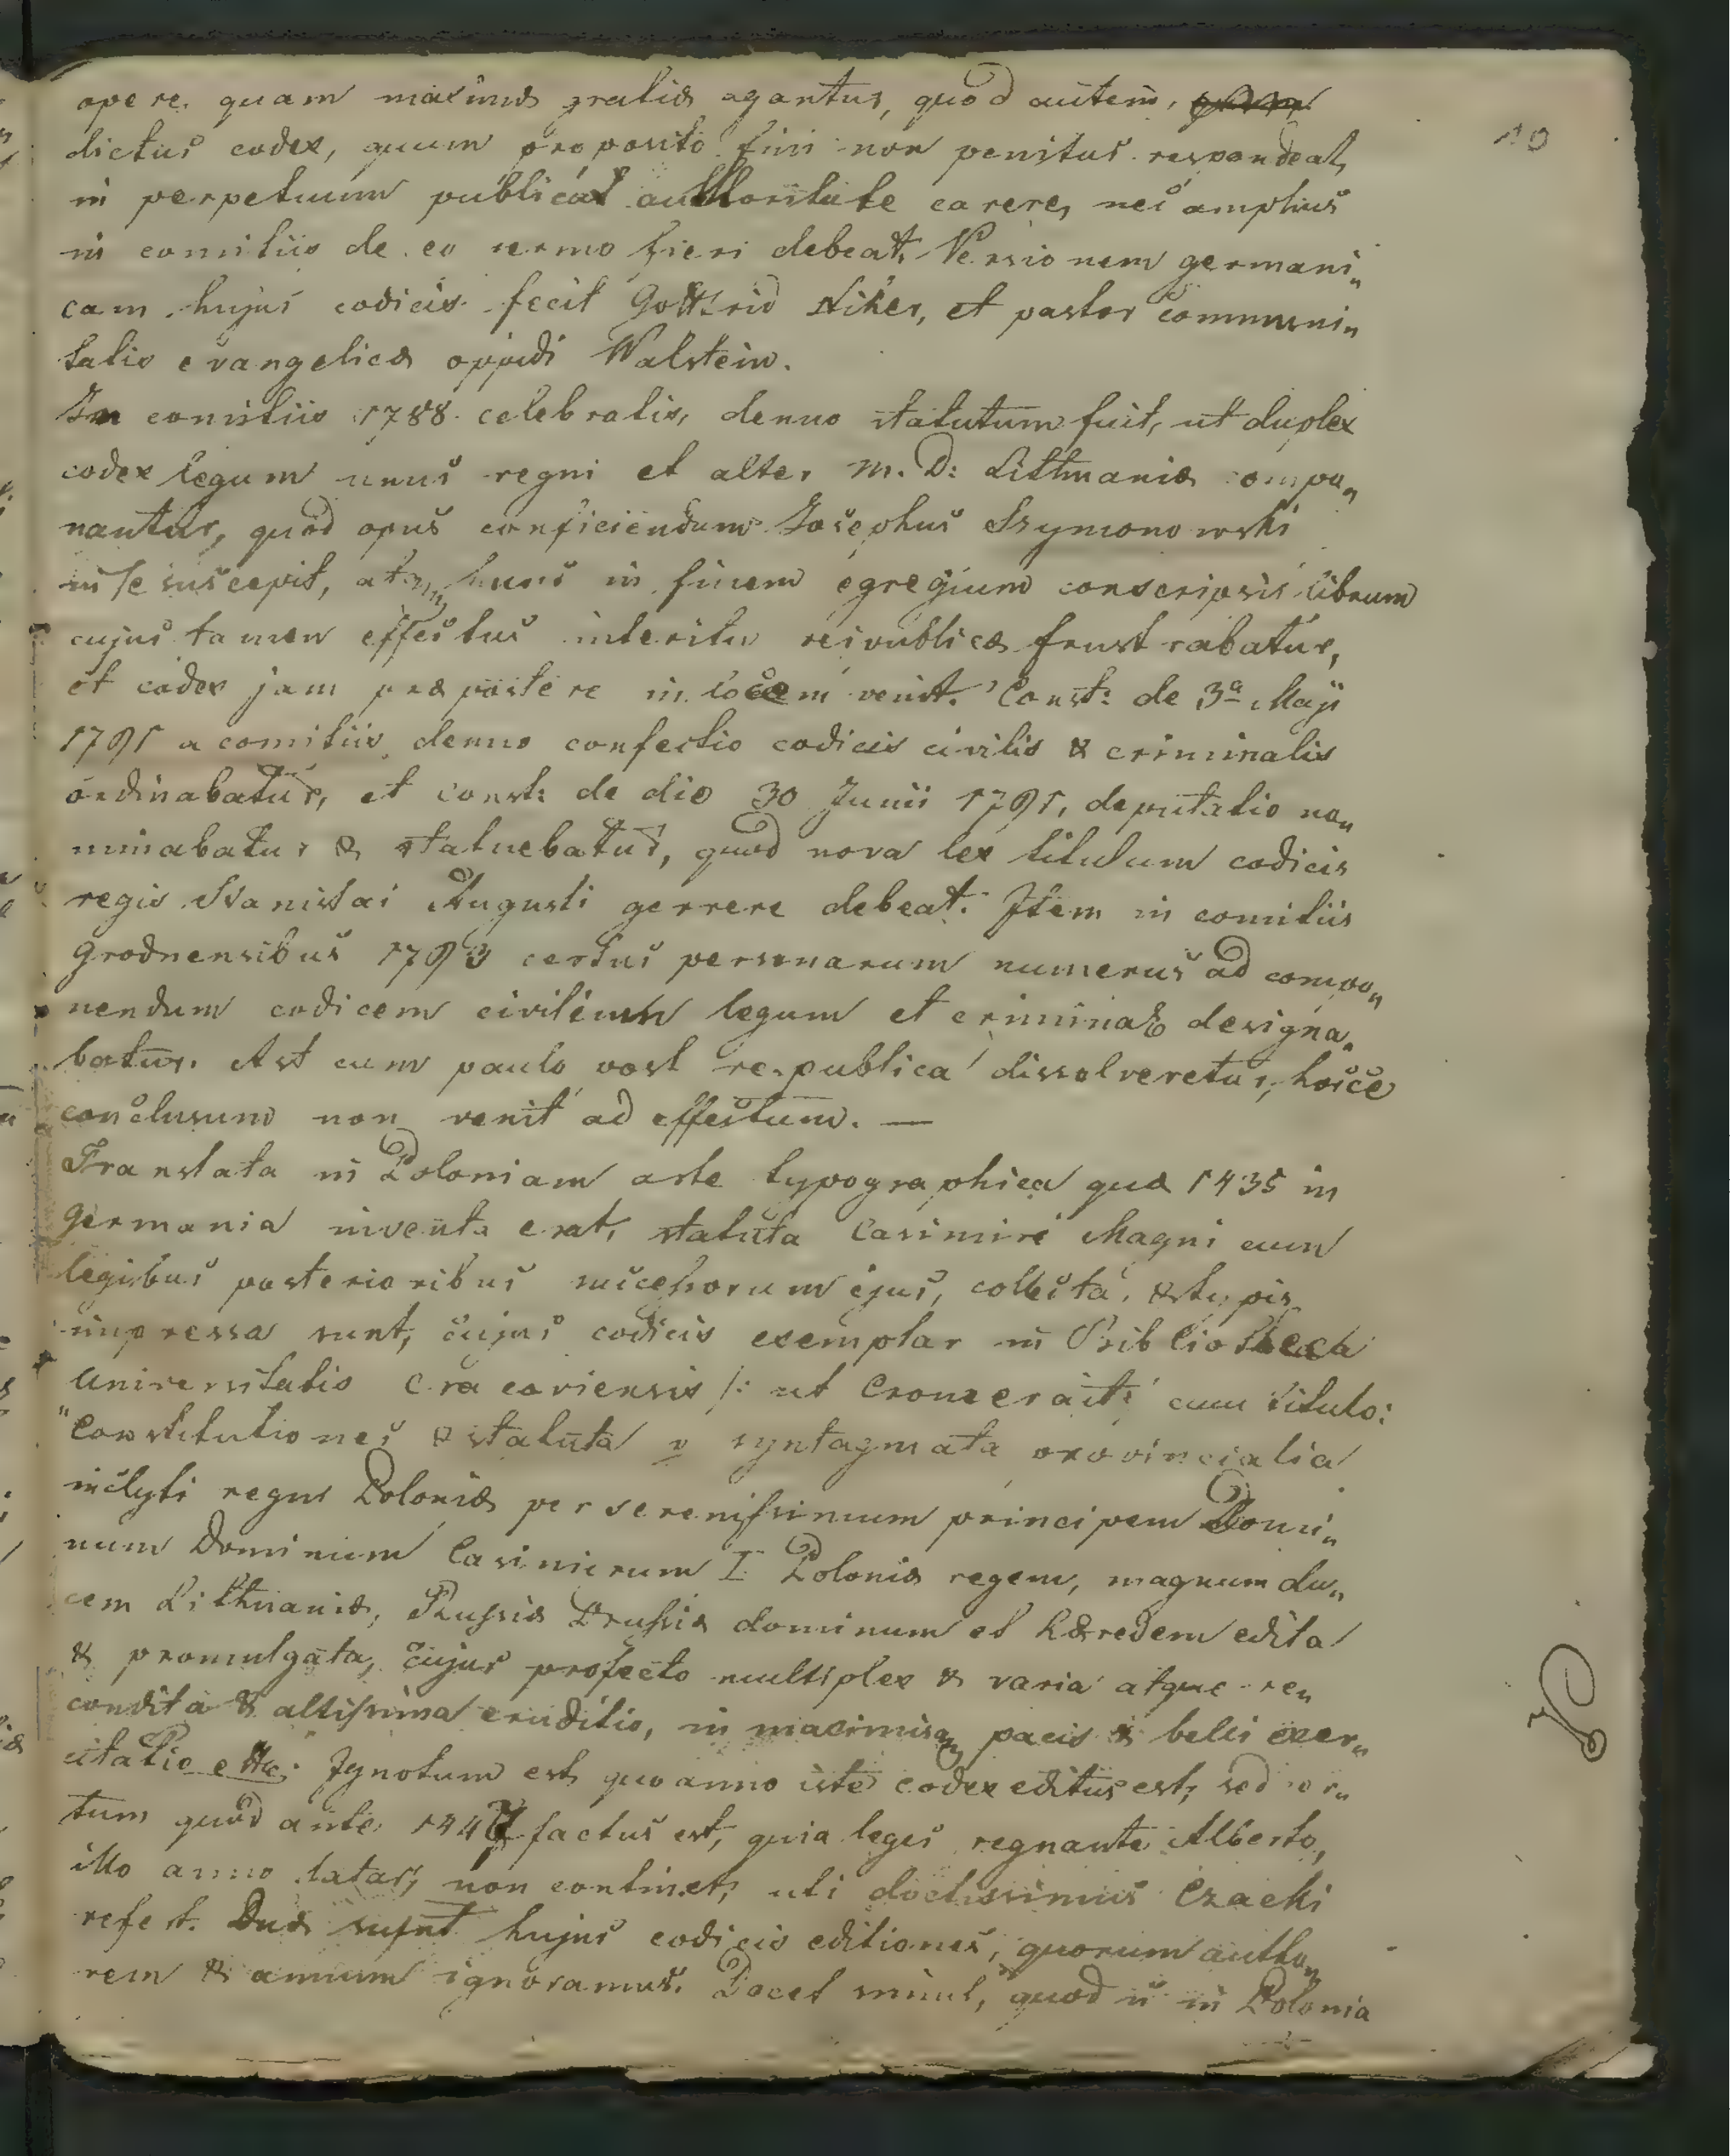 opere, quam maximæ gratiæ agantur, quod autem,
dictus codex, quum proposito fini non penitus respondeat,
in perpetuum publica authoritate carere, nec amplius
in comitiis de eo sermo fieri debeat. Versionem germani„
cam hujus codicis fecit Gottfrid Nikes, et pastor communi„
tatis evangelicæ oppidi Walstein.
In comitiis 1788 celebratis, denuo statutum fuit, ut duplex
codex legum unus regni et alter M. D: Lithuaniæ compo„
nantur, quod opus conficiendum Josephus Szymonowski
in se suscepit, atq hunc in finem egregium conscripsit librum
cujus tamen effectus interitu reipublicæ frustrabatur,
et codex jam præpostere in locem venit. Const: de 3ª Maji
1791 a comitiis denuo confectio codicis civilis & criminalis
ordinabatur, et const: de dio 30 Junii 1791, deputatio no„
minabatur & statuebatur, quod nova lex titulum codicis
regis Stanislai Augusti gerrere debeat. Item in comitiis
Grodnensibus 1793 certus personarum numerus ad compo„
nendum codicem civilium legum et criminal designa„
batur. Ast cum paulo post respublica dissolveretur, hocce
conclusum non venit ad effectum. —
Translata in Poloniam arte typographica quæ 1435 in
Germania inventa erat, statuta Casimiri Magni cum
legibus posterioribus successorum ejus, collecta, & typis
impressa sunt, cujus codicis exemplar in Bibliotheca
Universitatis Cracoviensis /: ut Cromer ait: cum titulo:
"Constitutiones & statuta & syntagmata provincialia
inclyti regni Poloniæ per serenissimum principem Domi„
num Dominum Casimirum I Poloniæ regem, magnum du„
cem Lithuaniæ, Russiæ Prussiæ dominum et hæredem edita
& promulgata, cujus profecto multiplex & varia atque re„
condita & altissima eruditio, in maximisq pacis & belli exer„
citatio etc: Ignotum est quo anno iste codex editus est, sed cer„
tum quod ante factus est, quia leges regnante Alberto,
illo anno latas, non continet, uti doctissimus Czacki
refert. Duæ sunt hujus codicis editiones, quorum autho„
rem & annum ignoramus. Docet simul, quod ii in Polonia
10